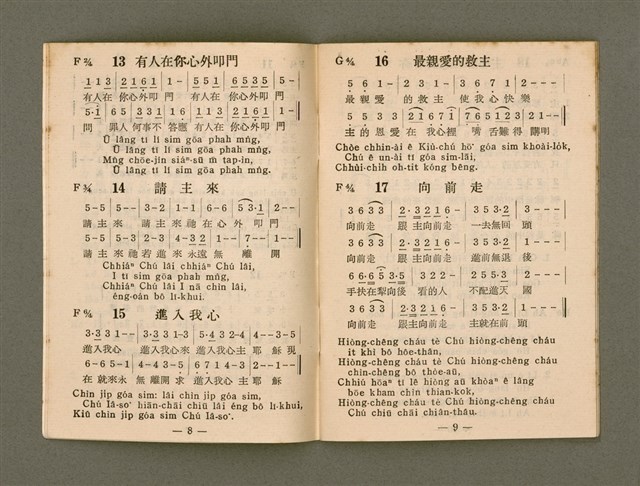 F 2/4 13 有人在你心外叩門
1 1 3 2 1 6 1 1 - 5 5 1 6 5 3 5 5 -
有人在 你心外叩 門 有人在 你心外叩 門
5·1 6 5 3 3 2 1 1 6 1 1 3 2 1 6 1 1 -
問 罪人 何事不 答應 有人在 你心外叩 門
Ū lâng tī lí sim gōa phah mn̂g,
Ū lâng tī lí sim gōa phah mn̂g,
Mn̄g chōe-jîn siáⁿ-sū m̄ tap-ìn,
Ū lâng tī lí sim gōa phah mn̂g.
F 3/4 14 請主來
5 - 5 5 - - 3 - 2 1 - 1 6 - 6 5 3·1 2 - -
請 主 來 請 主 來 祂 在 心 外 叩 門
5 - 5 5 - 3 2 - 3 4 - 3 2 1 - - 7 - - 1 - -
請 主 來 祂 若 進 來 永 遠 無 離 開
Chhiáⁿ Chú lâi chhiáⁿ Chú lâi,
I tī sim gōa phah mn̂g,
Chhiáⁿ Chú lâi I nā chìn lâi,
éng-oán bô lī-khui.
F 6/8 15 進入我心
3·3 3 1 - - 3·3 3 1 - 3 5·4 3 2 - 4 4 - - 3 - 5
進入我心 進入我心來 進入我心主 耶 穌 現
6 - 6 5 - 1 4 - 4 3 - 5 6 7 1 4 - 3 2 - - 1 - -
在 就來永 無 離開求 進入我心主 耶 穌
Chìn ji̍p góa sim: lâi chìn ji̍p góa sim,
Chú Iâ-so͘ hiān-chāi chiū lâi éng bô lī-khui,
Kiû chìn ji̍p góa sim Chú Iâ-so͘.
— 8 —
G 4/4 16 最親愛的救主
5 6 1 - 2 3 1 - 3 6 7 1 2 - - -
最 親 愛 的 救 主 使 我 心 快 樂
5 5 3 3 2 1 6 7 1 7 6 5 1 2 3 2 1 -
主 的 恩 愛 在 我心裡 嘴 舌難得 講明
Chòe chhin-ài ê Kiù-chú hō͘ góa sim khoài-lo̍k,
Chú ê un-ài tī góa sim-lāi,
Chhùi-chi̍h oh-tit kóng bêng.
F 4/4 17 向前走
3 6 3 3 2·3 2 1 6 - 3 5 3·2 3 - - -
向前走 跟主向前走 一去無回 頭
3 6 3 3 2·3 2 1 6 - 3 5 3·2 1 - - -
向前走 跟主向前走 進前無退 後
6 6·6 5 3·5 3 2 2 - 2 5 5·3 2 - - -
手扶在犁向後 看的人 不配進天 國
3 6 3 3 2·3 2 1 6 - 3 5 3·2 1 - - -
向前走 跟主向前走 主就在前 頭
Hiòng-chêng cháu tè Chú hiòng-chêng cháu
it khì bô hôe-thâu,
Hiòng-chêng cháu tè Chú hiòng-chêng cháu
chìn-chêng bô thòe-aū,
Chhiú hōaⁿ tī lê hiòng aū khòaⁿ ê lâng
bōe kham chìn thian-kok,
Hiòng-chêng cháu tè Chú hiòng-chêng cháu
Chú chiū chāi chiân-thâu.
— 9 —